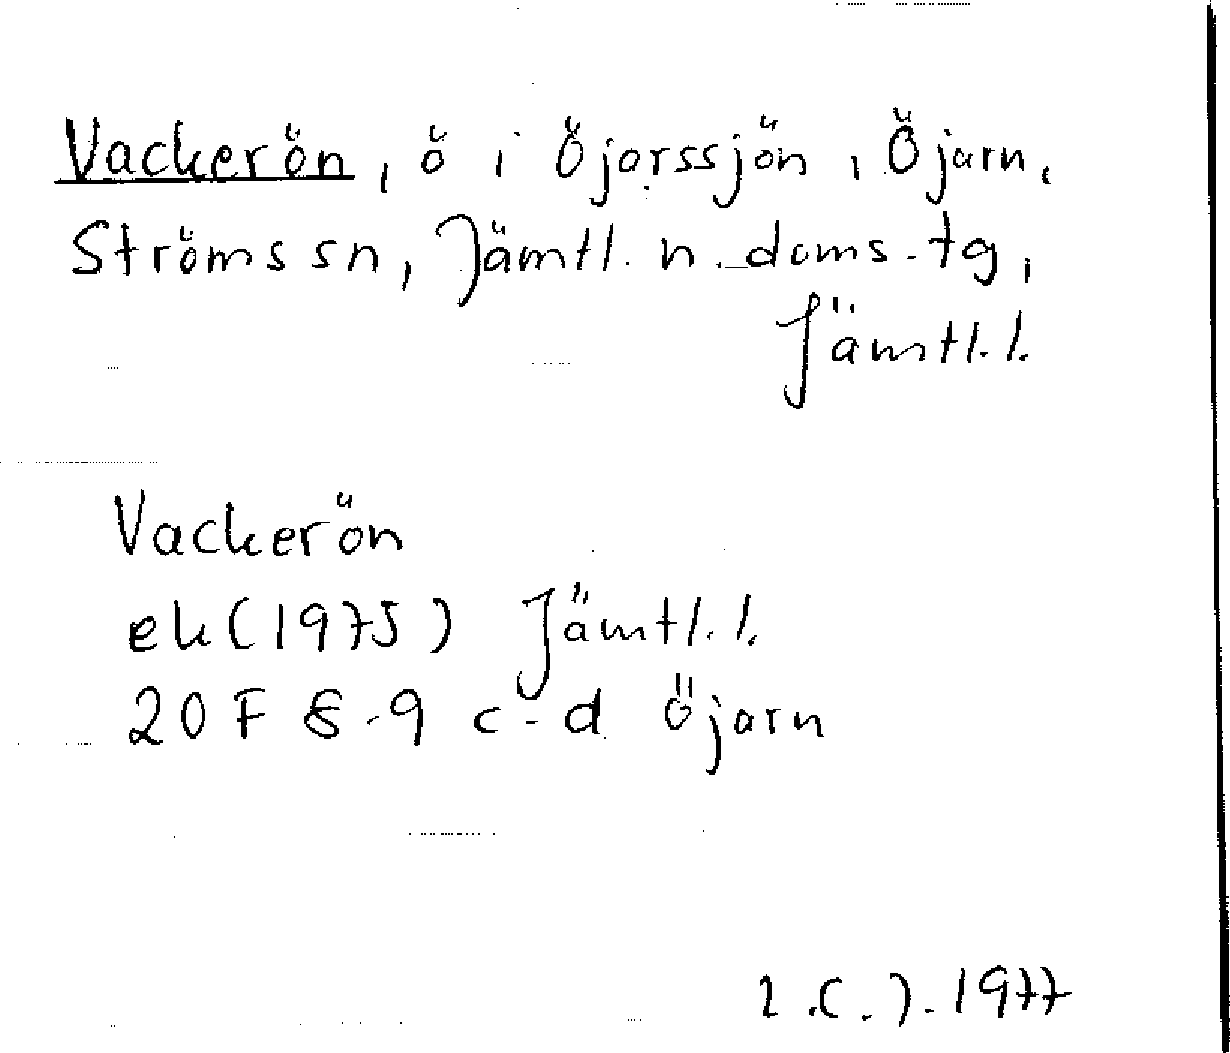 Vackerön, ö i Öjarssjön, Öjarn,
Ströms sn, Jämtl. n. doms.tg,
Jämtl.l.
Vackerön
ek (1975) Jämtl.l.
20 F 8-9 c-d Öjarn
1977